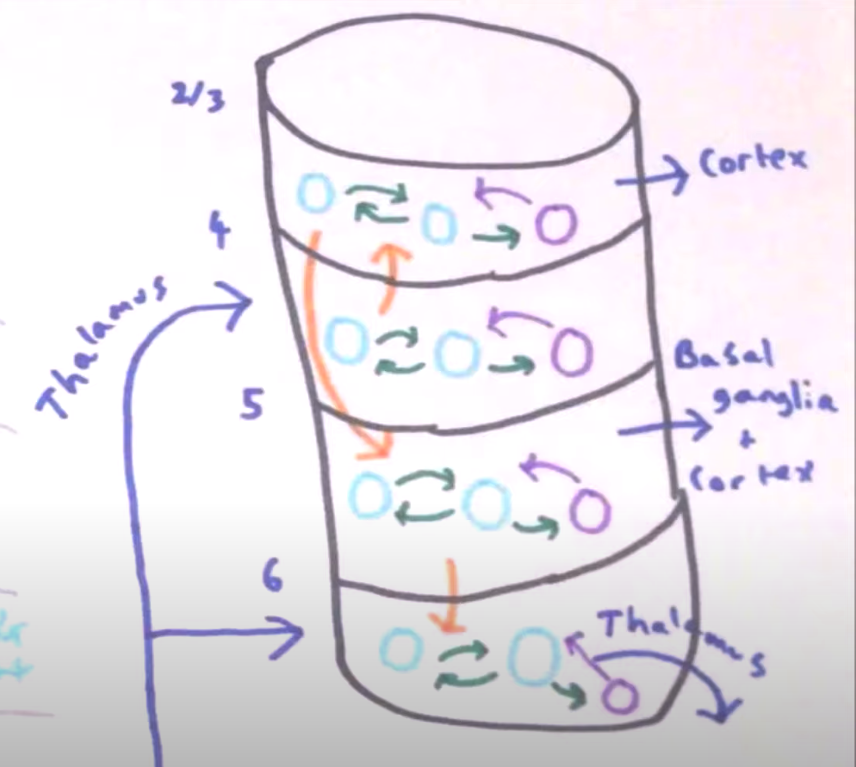 2/3
Cortex
4
Thalamus
Basal
ganglia
+
Cortex
5
6
Thalamus